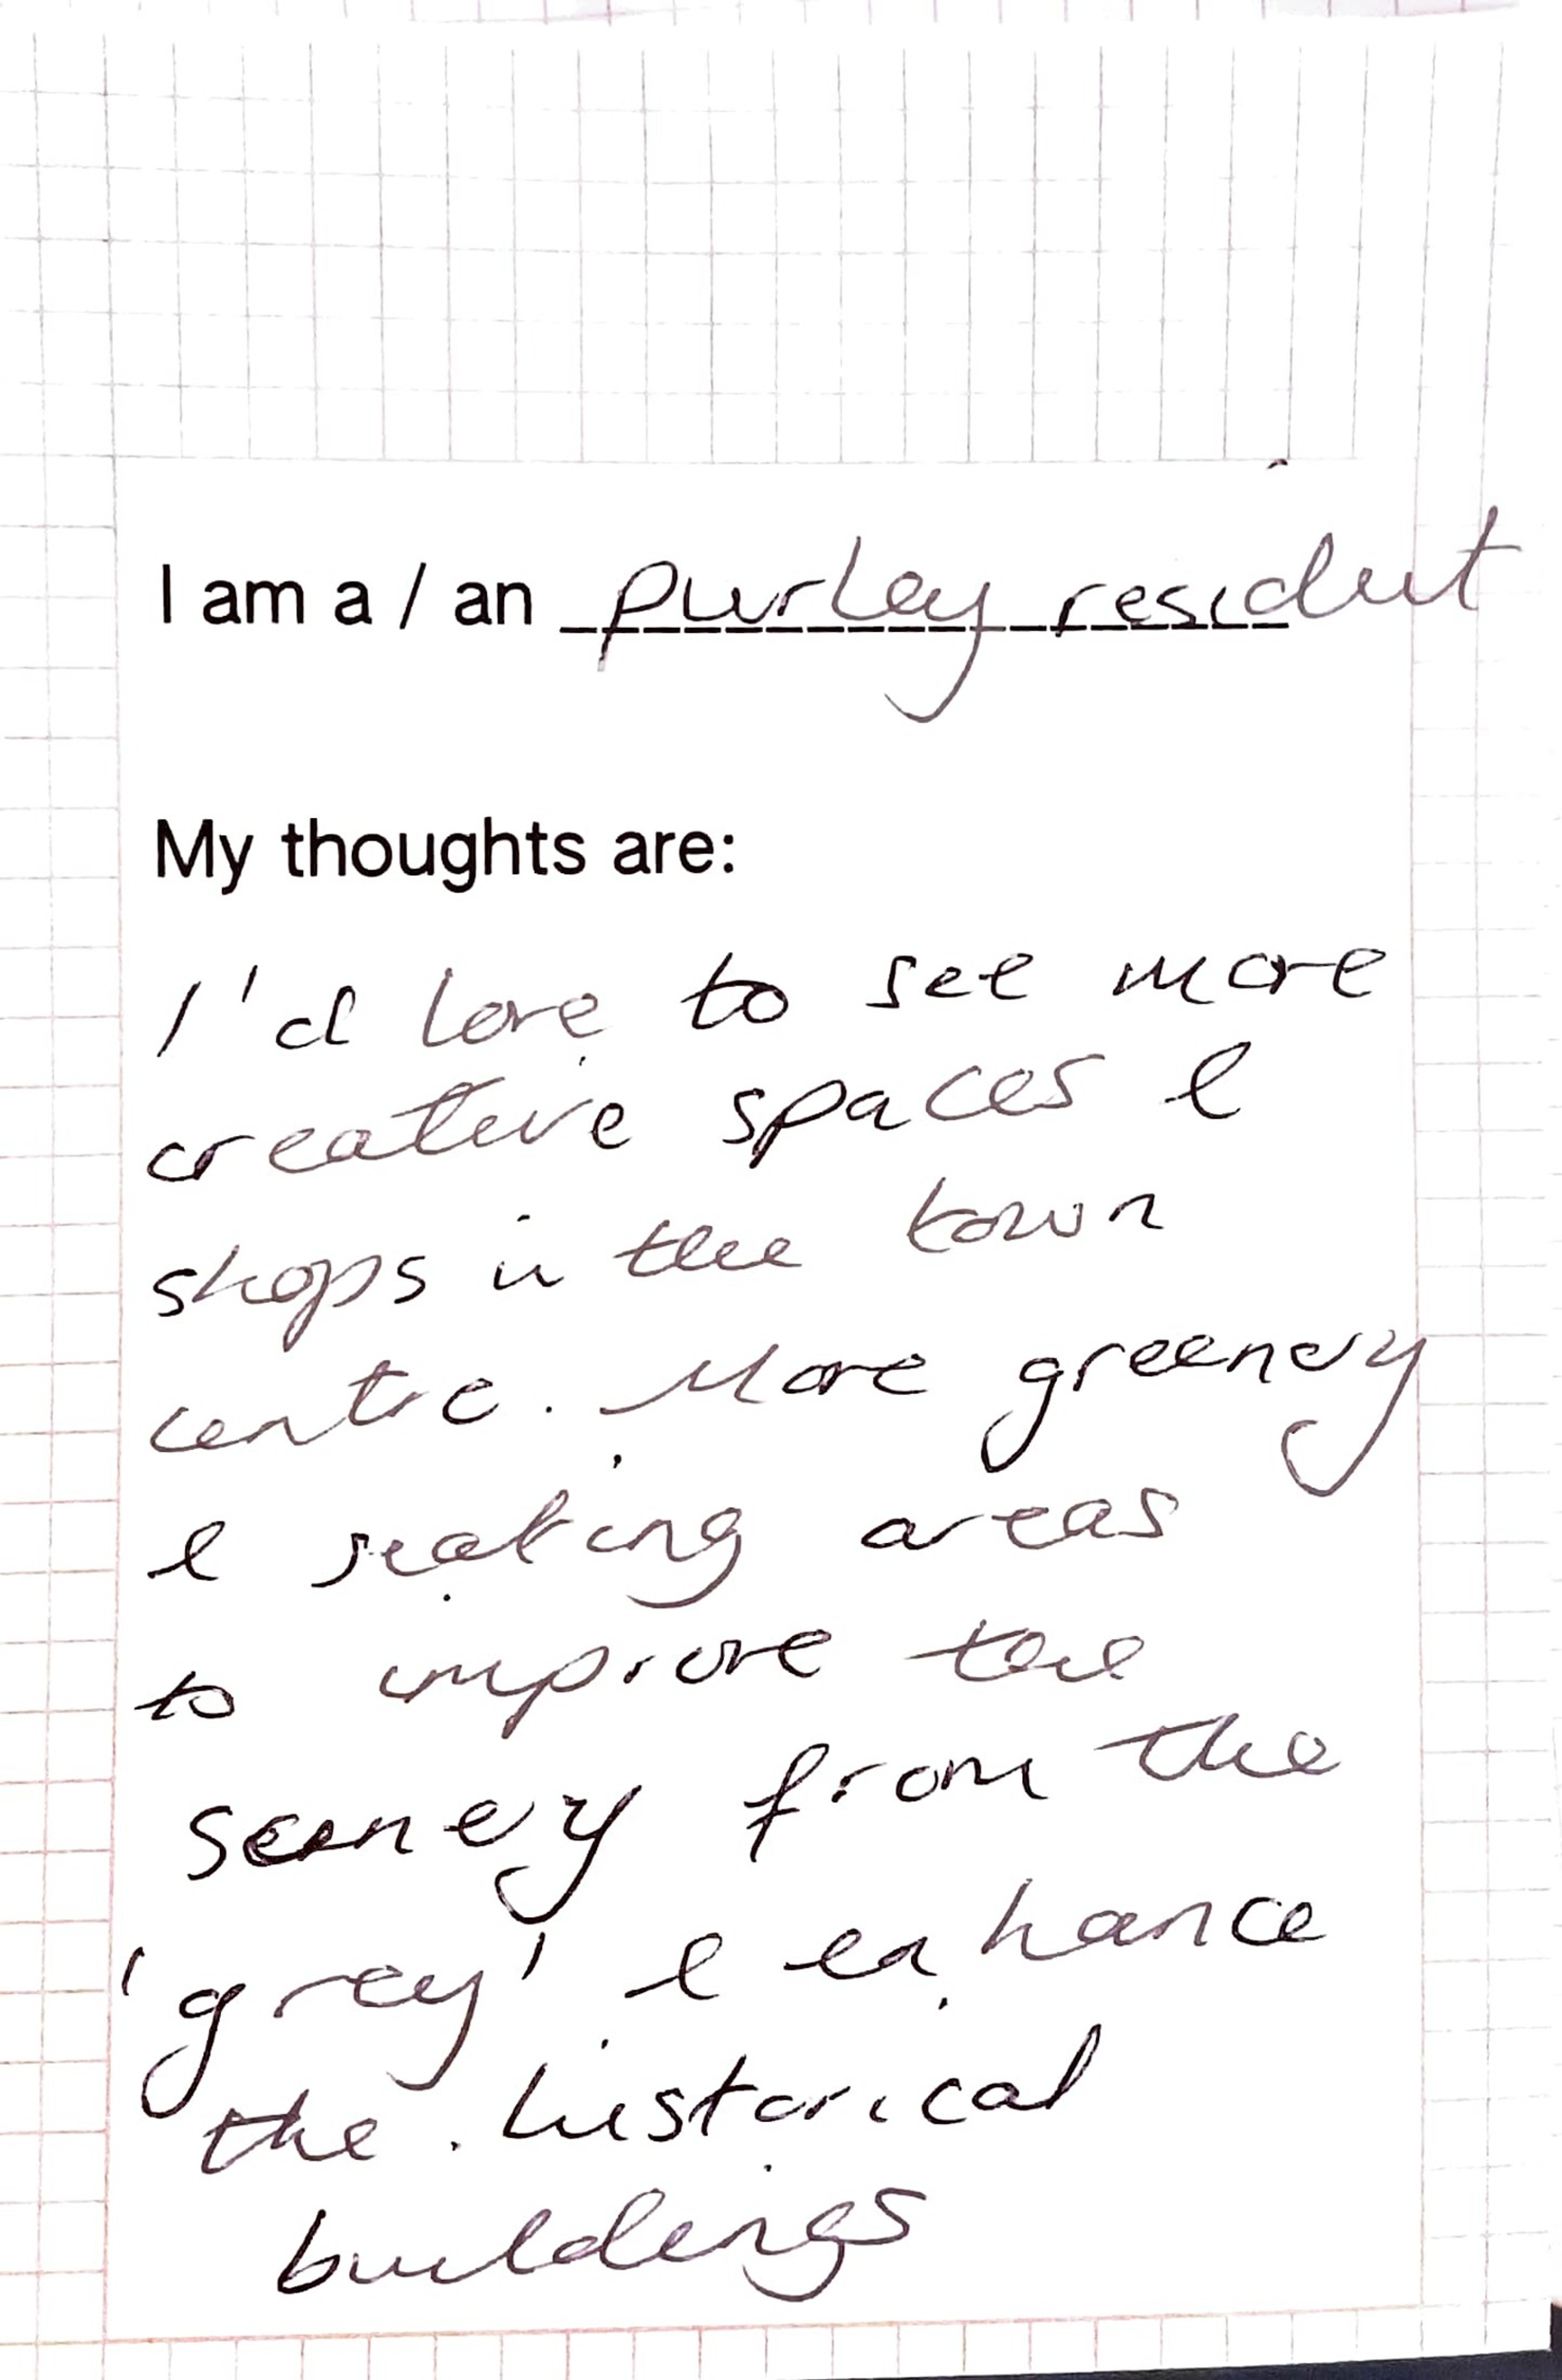 I am a / an purley resident
My thoughts are:
I'd love to see more
creative spaces &
shops in the town
centre. More greenery
& seating areas
to improve the
scenery from the
'grey' & enhance
the historical
buildings